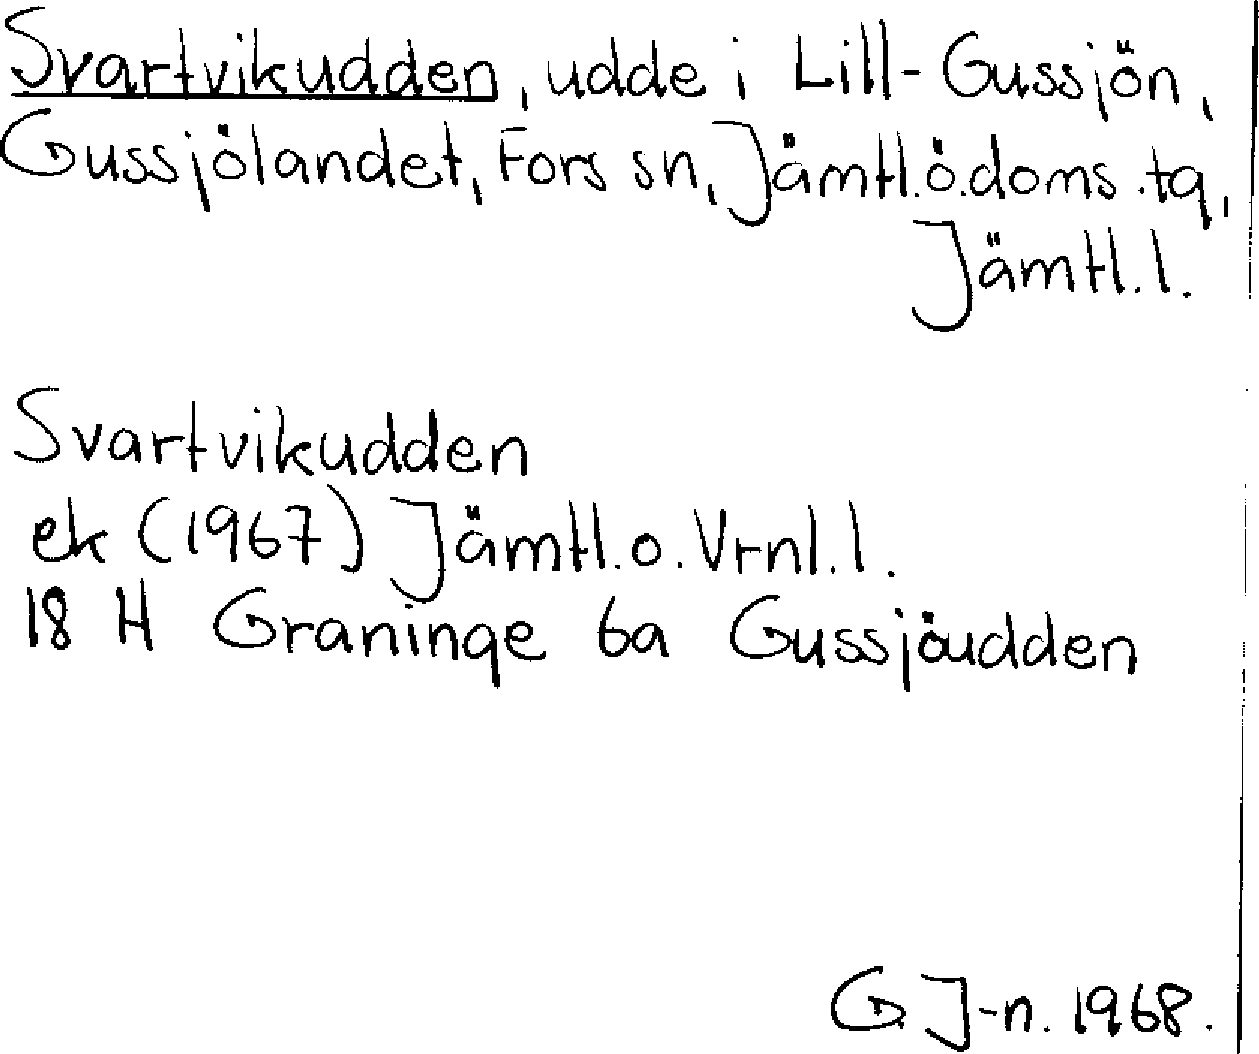 Svartvikudden, udde i Lill-Gussjön,
Gussjölandet, Fors sn, Jämtl.ö.doms.tg,
Jämtl.l.
Svartvikudden
ek (1967) Jämtl.o.Vrnl.l.
18 H Graninge 6a Gussjöudden
G J-n. 1968.